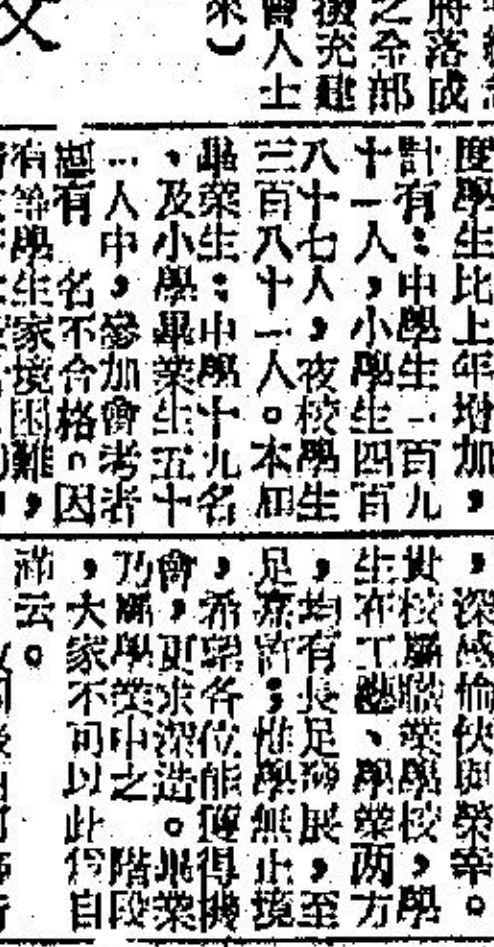 年級
將落成
之全部
撥充建
會人士
來）
文
度學生比上年增加，
計有：中學生一百九
十一人，小學生四百
八十七人，夜校學生
三百八十一人。本屆
畢業生：中學十九名
、及小學畢業生五十
一人中，參加會考者
有 名不合格。因
有等學生家境困難，
，深感愉快與榮幸。
貴校屬職業學校，學
生在工藝、學業两方
，均有長足發展，至
足嘉許；惟學無止境
，希望各位能獲得機
會，更求深造。畢業
乃屬學業中之 階段
，大家不可以此為自
滿云。